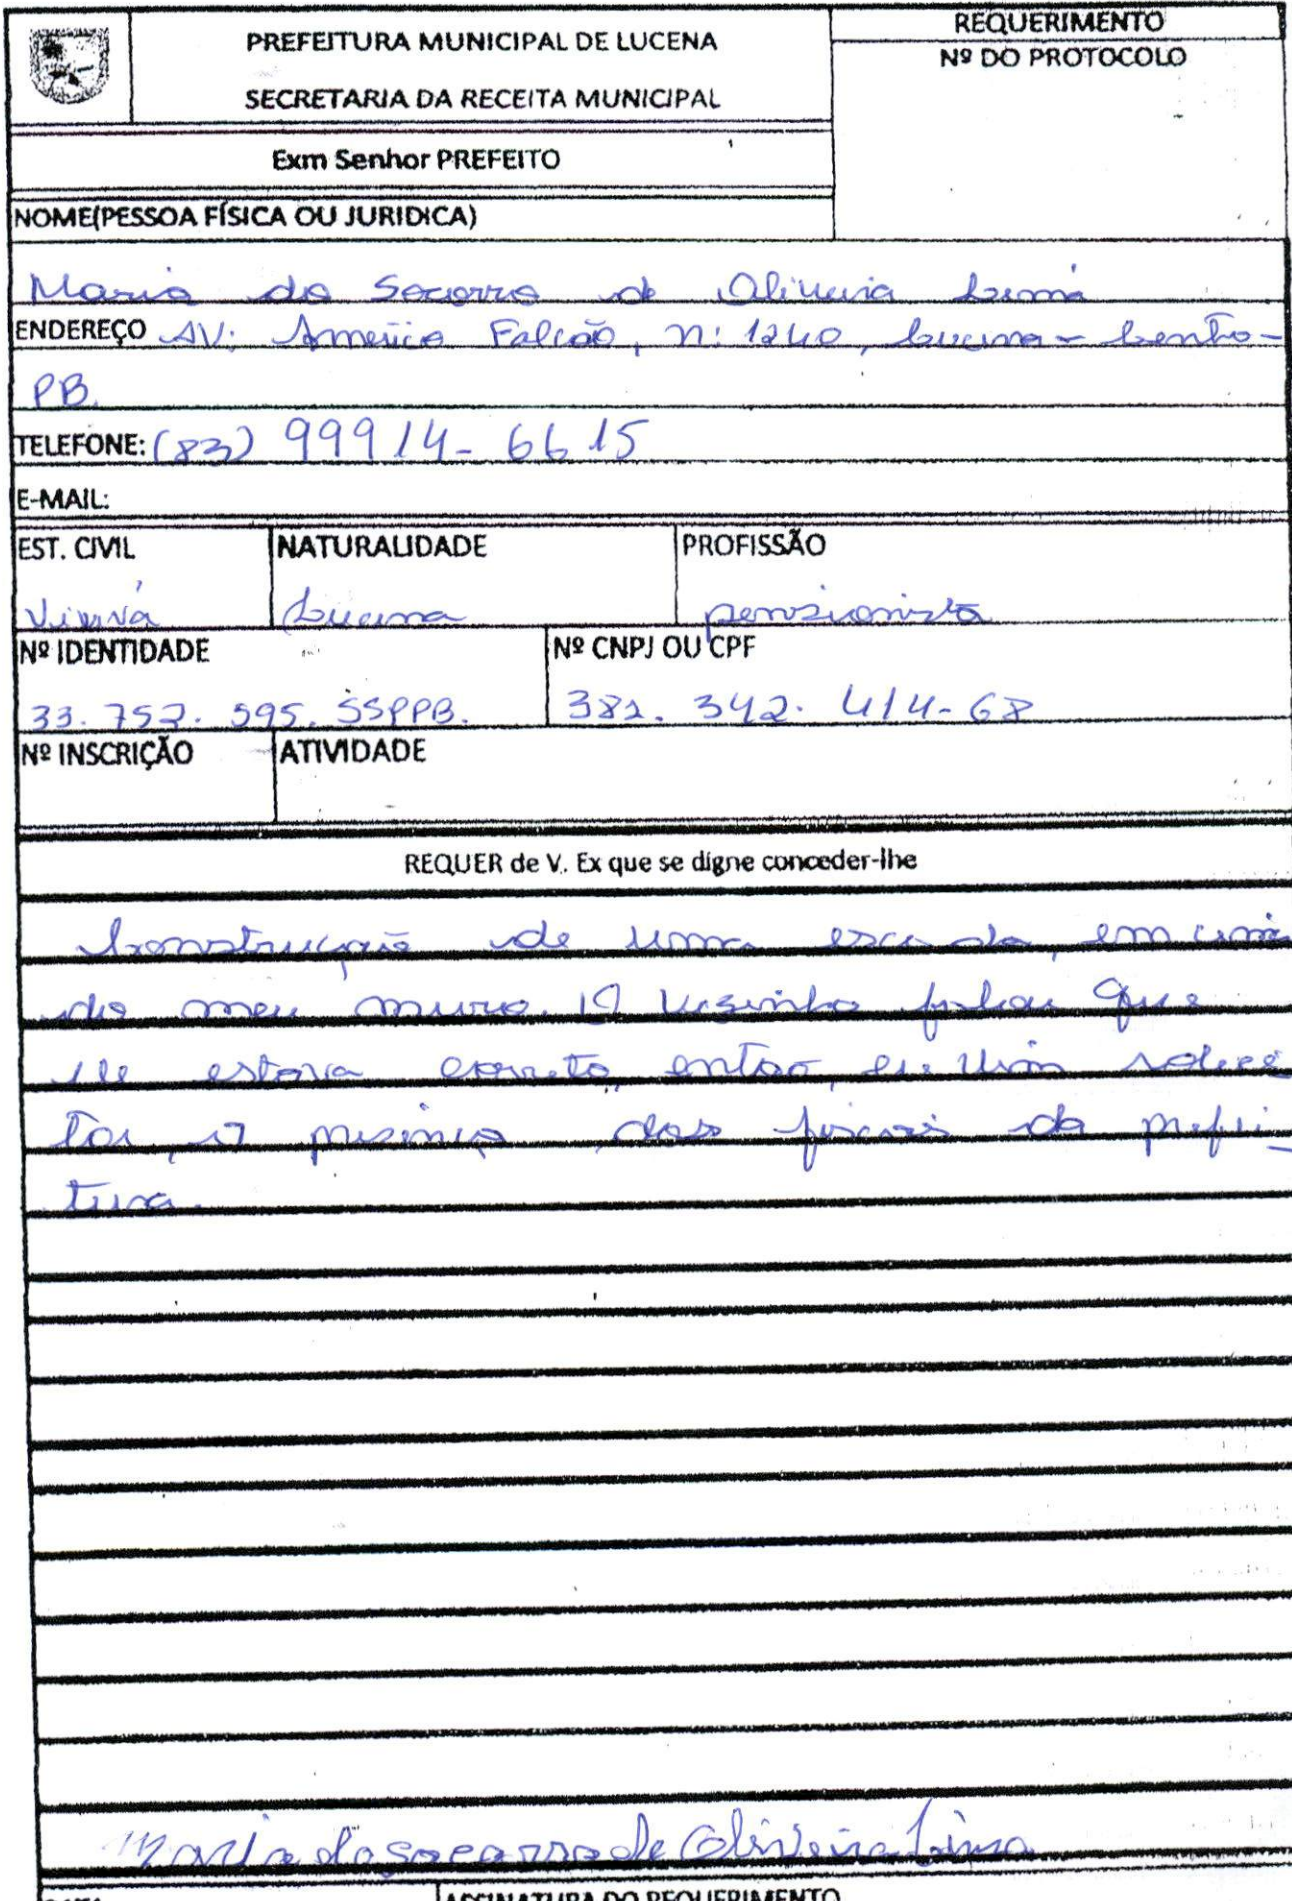 PREFEITURA MUNICIPAL DE LUCENA
SECRETARIA DA RECEITA MUNICIPAL
REQUERIMENTO
Nº DO PROTOCOLO
Exm Senhor PREFEITO
NOME(PESSOA FÍSICA OU JURIDICA)
Maria do Socorro de Oliveira Lima
ENDEREÇO AV: Americo Falcão, n: 1240, Lucena - Centro -
PB.
TELEFONE: (83) 99914-6615
E-MAIL:
EST. CIVIL NATURALIDADE PROFISSÃO
Viuva Lucena pensionista
Nº IDENTIDADE Nº CNPJ OU CPF
33. 752. 595. SSPPB. 381. 342. 414-68
Nº INSCRIÇÃO ATIVIDADE
REQUER de V. Ex que se digne conceder-lhe
Construção de uma escada, em cima
do meu muro. O vizinho falou que
ele estava correto, então, eu vim solici
tar, a presença dos fiscais da prefei-
tura.
Maria do Socorro de Oliveira Lima
ASSINATURA DO REQUERIMENTO